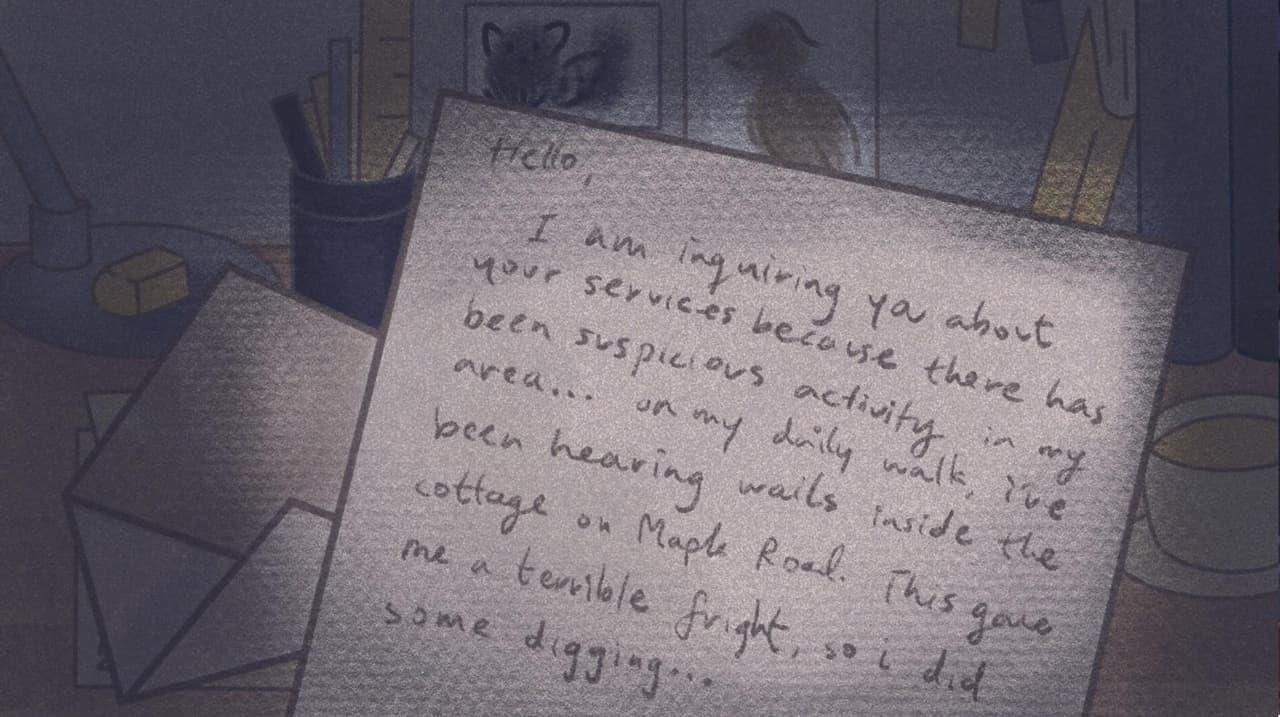 Hello,
I am inquiring ya about
your services because there has
been suspicious activity in my
area... on my daily walk, i've
been hearing wails inside the
cottage on Maple Road. This gave
me a terrible fright, so i did
some digging...